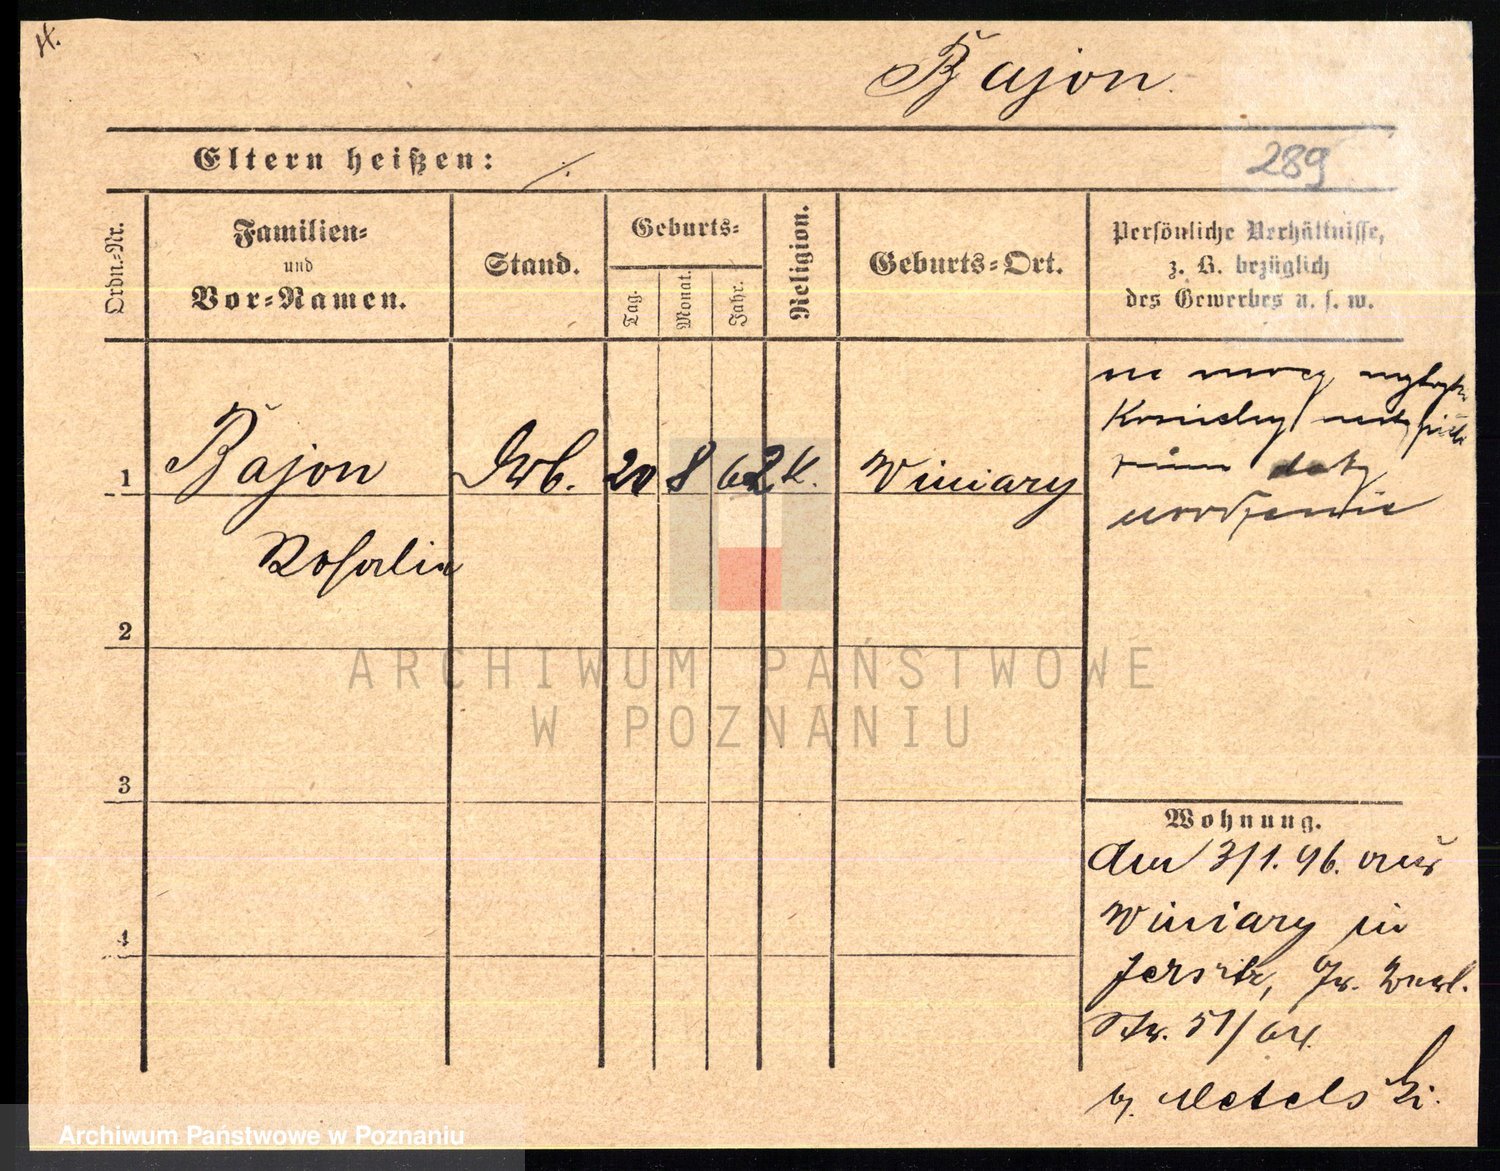 H.
Bajon
Eltern heißen: ./.
289
Ordn.-Nr.
Familien-
und
Vor-Namen.
Stand.
Geburts-
Tag.
Monat.
Jahr.
Religion.
Geburts-Ort.
Persönliche Verhältnisse,
z. B. bezüglich
des Gewerbes u. s. w.
1
Bajon
Arb. 20 8 62 K. Winiary
Rosalia
2
3
4
Wohnung.
3/1. 96. aus
Winiary in
Jersitz, Gr. Berl.
Str. 51/
b. Metelski.
ARCHIWUM PAŃSTWOWE
W POZNANIU
Archiwum Państwowe w Poznaniu